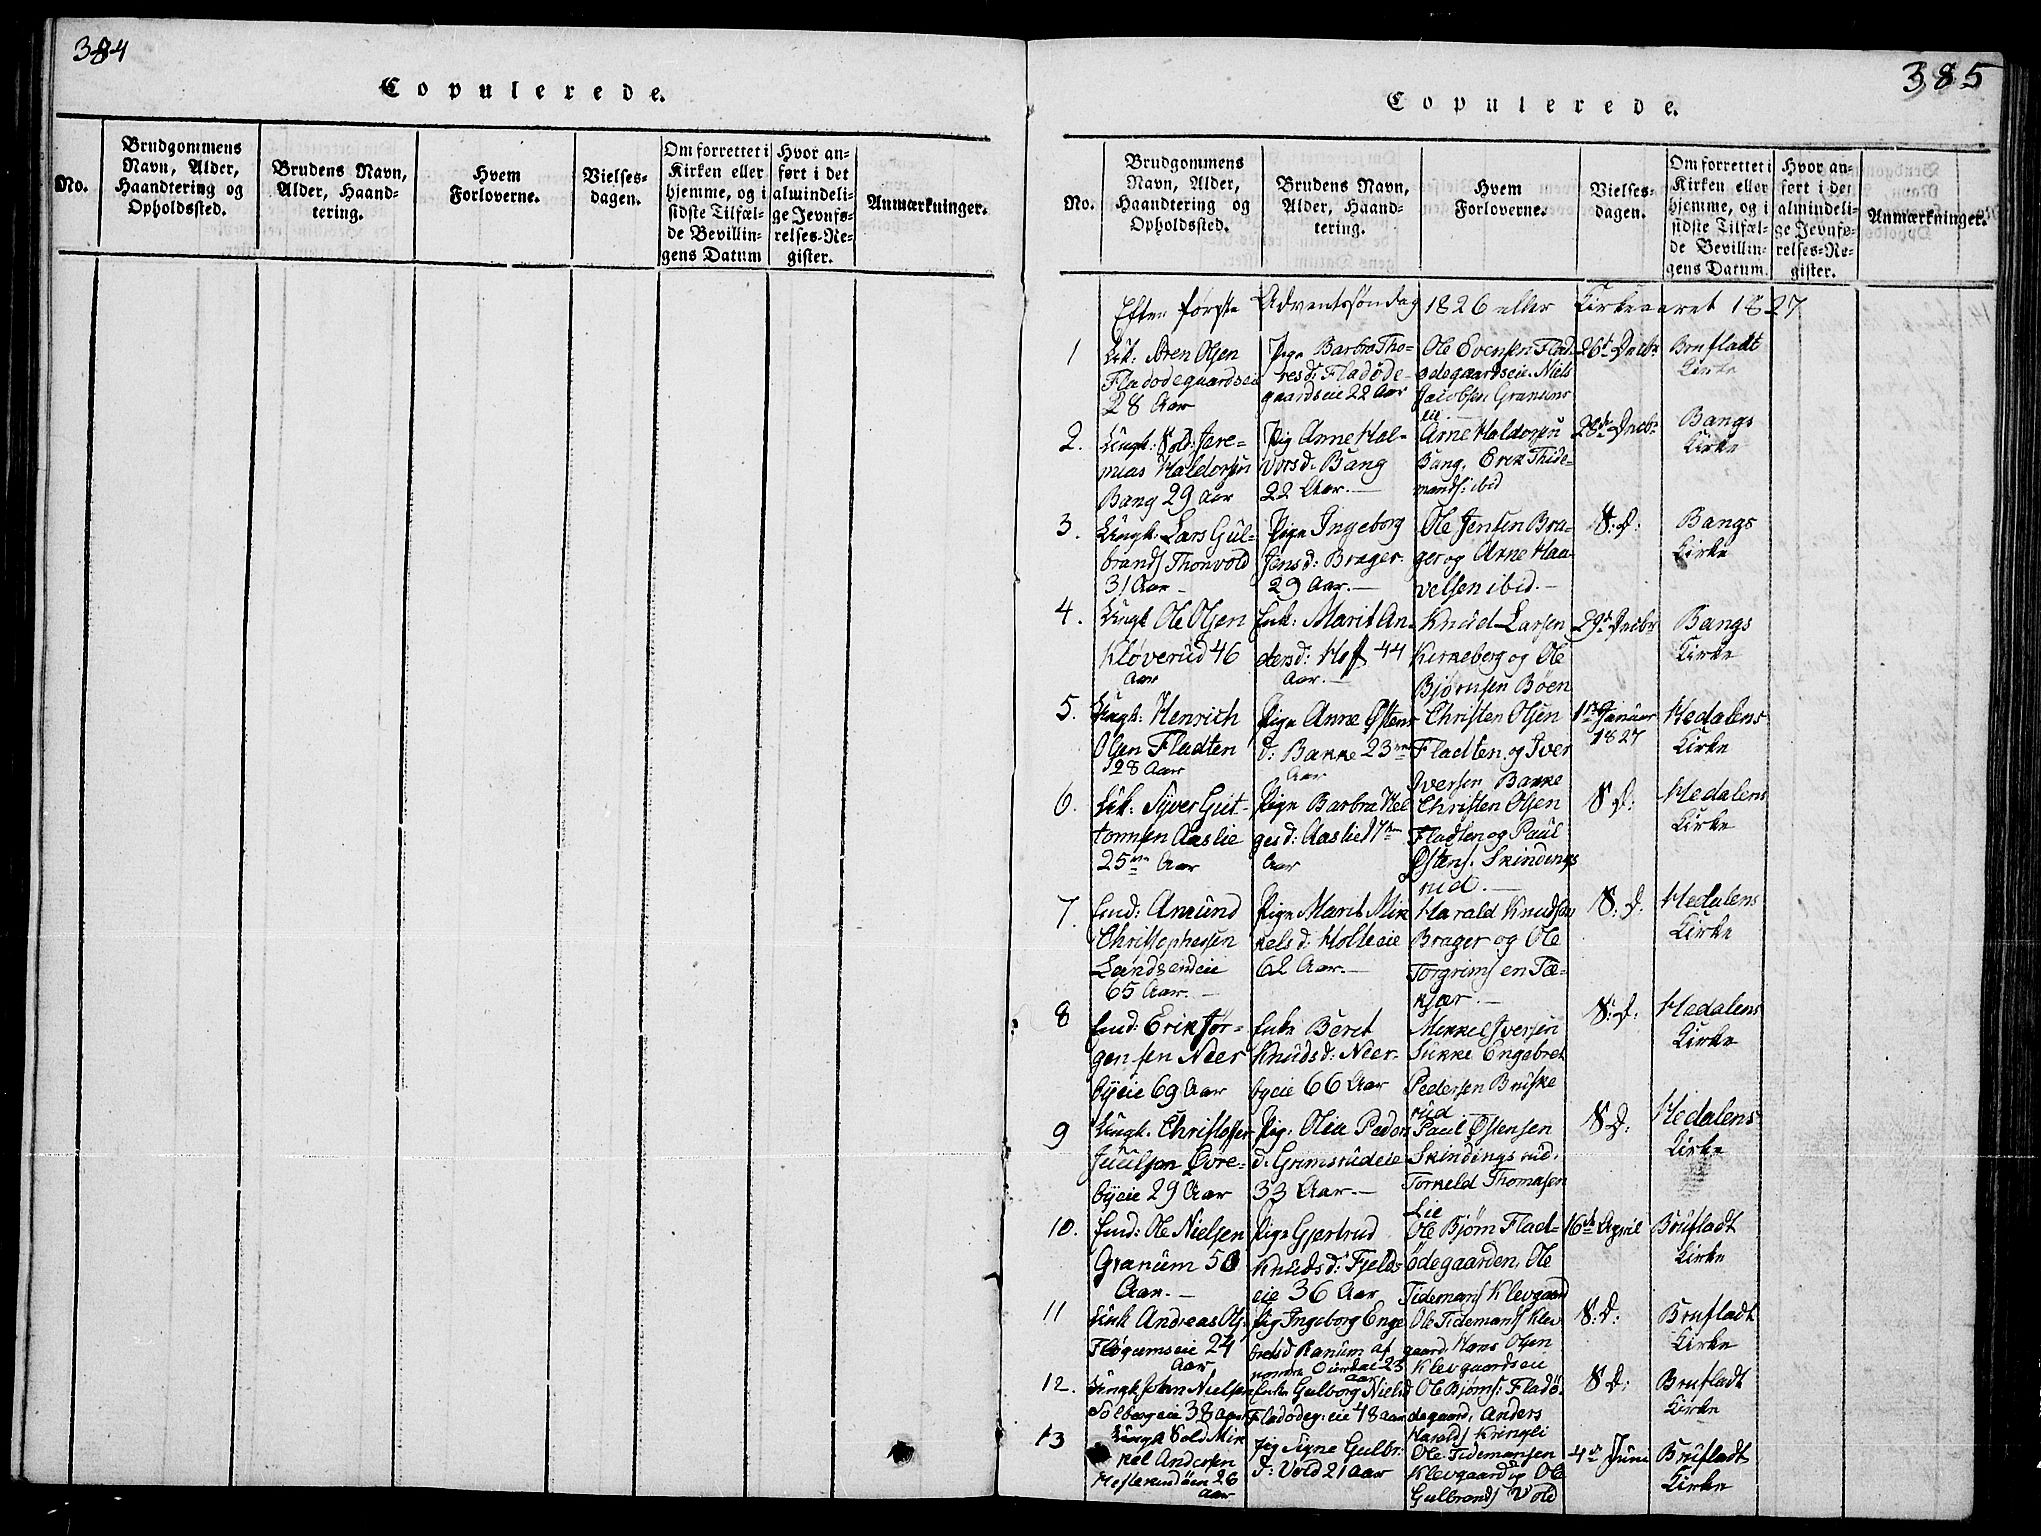 384
Copulerede.
No.
Brudgommens
Navn, Alder,
Haandtering og
Opholdssted.
Brudens Navn,
Alder, Haand-
tering.
Hvem
Forloverne.
Vielses-
dagen.
Om forrettet i
Kirken eller
hjemme, og i
sidste Tilfæl-
de Bevillin-
gens Datum
Hvor an-
ført i det
almindeli-
ge Jevnfø-
relses-Re-
gister.
Anmærkninger.
385
Copulerede.
No.
Brudgommens
Navn, Alder,
Haandtering og
Opholdssted.
Brudens Navn,
Alder, Haand-
tering.
Hvem
Forloverne.
Vielses-
dagen.
Om forrettet i
Kirken eller
hjemme, og i
sidste Tilfæl-
de Bevillin-
gens Datum.
Hvor an-
ført i det
almindeli-
ge Jevnfø-
relses-Re-
gister.
Anmærkninger.
Efter første Adventssøndag 1826 eller Kirkeaaret 1827
1
Olsen
28 Aar
Pige Barbro Tho-
resd: Fladøde-
gaardseie 22 Aar
Ole Evensen Flad-
ødegaardseie. Niels
Jacobsen Granums
eie.
26d Decbr
Brufladt
Kirke
2.
Ungk: Sold: Jere-
mias Haldorsen
Bang 29 Aar
Pig Anne Hal-
vorsd: Bang
22 Aar.
Arne Haldorsen
Bang, Erik Thide-
mands: ibid
28de Decbr
Bangs
Kirke
3.
Ungk: Lars Gul-
brands Thonvold
31 Aar
Pige Ingeborg
Jensd: Brager.
29 Aar.
Ole Jensen Bra-
ger og Arne Haa-
velsen ibid.
S: D:
Bangs
Kirke
4.
Ungk Ole Olsen
Kløverud 46
Aar
Enk: Marit An-
dersd: Hoff 44
Aar.
Knud Larsen
Kirkeberg og Ole
Bjørnsen Bøen
29d Decbr
Bangs
Kirke
5.
Ungk: Henrich
Olsen Fladten
28 Aar
Pige Anne Østens
d: Bakke 23
Aar
Christen Olsen
Fladten og Iver
Iversen Bakke
1ste Januar
1827
Hedalens
Kirke
6.
Syver Gut-
tormsen Aaslie
25 Aar
Pige Barbra Hel
gesd: Aaslie 17
Aar
Christen Olsen
Fladten og Paul
Østens: Skindings
rud.
S D:
Hedalens
Kirke
7.
Enk: Amund
Christophersen
Landsendeie
65 Aar.
Pige Marit Mik
kelsd: Holteeie
62 Aar.
Harald Knudsen
Brager og Ole
Torgrimsen Tæ-
kjær.
S: D:
Hedalens
Kirke
8
Enk: Erik Jør-
gensen Neer
byeie 69 Aar
Enke Beret
Knudsd: Neer-
byeie 66 Aar
Mikkel Iversen
Sukke Engebret
Pedersen Bruske
rud
S: D:
Hedalens
Kirke
9
Ungk. Christoffer
Juulsen Øvre-
byeie 29 Aar
Pig: Olea Peders
d: Grimsrudeie
33 Aar.
Paul Østensen
Skindingsrud,
Torkeld Thomasen
Lie
S D:
Hedalens
Kirke
10.
Enk: Ole Nielsen
Granum 50
Aar.
Pige Gjertrud
Knudsd: Fjelds
eie 36 Aar
Ole Bjørn Flad-
ødegaarden, Ole
Tidemans Klevgaard
16de April
Brufladt
Kirke
11
Andreas Ols:
Fløgumseie 24
Aar
Pig Ingeborg Enge
bretsd Ranum af
nordre Ourdal 23
Aar
Ole Tidemans Klev
gaard, Hans Olsen
Klevgaardseie
S: D:
Brufladt
Kirke
12.
Ungk John Nielsen
Solbergeie 38 Aar
Enke Gulborg Nielsd
Fladødeg: eie 48 Aar
Ole Bjørns: Fladø-
degaard, Anders
Haralds Kringli
S D:
Brufladt
Kirke
13
Ungk Sold Mik
kel Andersen
26
Aar
Pig Signe Gulbr:
d: Vold 21 Aar
Ole Tidemansen
Klevgaard og Ole
Gulbrands Vold
4de Juni
Brufladt
Kirke